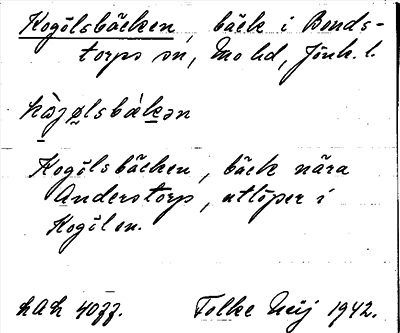 Kogölsbäcken, bäck i Bonds-
torps sn, Mo hd, Jönk. l.
Kogölsbäcken, bäck nära
Anderstorp, utlöper i
Kogölen.
hAh 40
Folke Meij 1942.